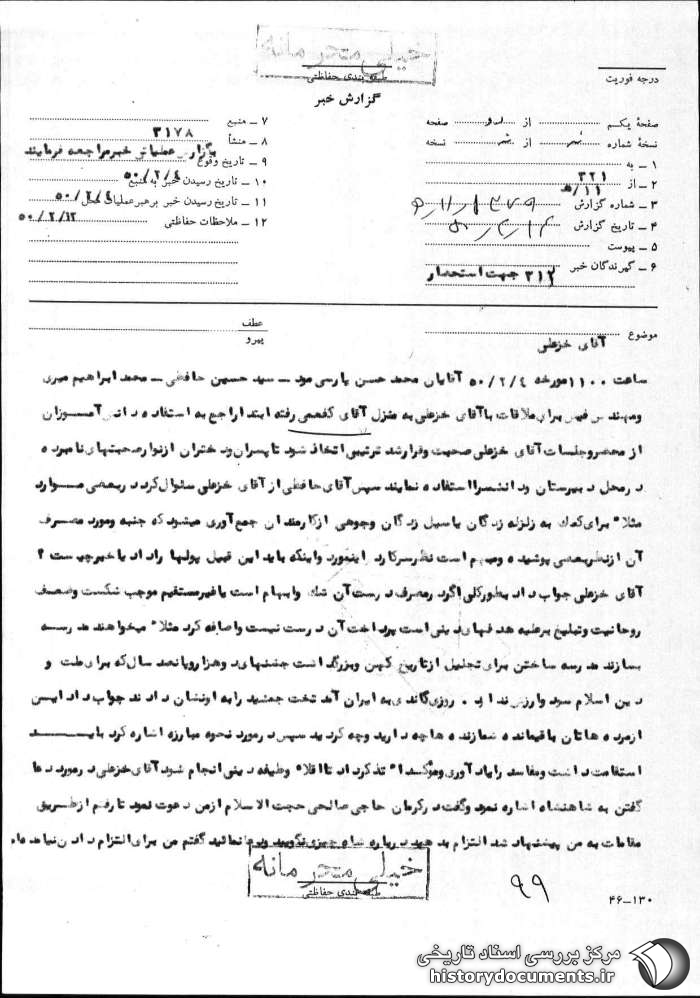 خیلی محرمانه
طبقه بندی حفاظتی
گزارش خبر
درجه فوریت
صفحهٔ یکم از دو صفحه
نسخهٔ شماره از نسخه
۱ ــ به ۳۲۱
۲ ــ از ۱۱/ه
۳ ــ شماره گزارش
۴ ــ تاریخ گزارش
۵ ــ پیوست
۶ ــ گیرندگان خبر ۳۱۲ جهت استحضار
۷ ــ منبع ۳۱۷۸
۸ ــ منشأ بگزارش عملیاتی خبر مراجعه فرمایند
۹ ــ تاریخ وقوع ۵۰/۲/۴
۱۰ ــ تاریخ رسیدن خبر به منبع
۱۱ ــ تاریخ رسیدن خبر برهبر عملیات محل ۵۰/۲/۴
۱۲ ــ ملاحظات حفاظتی ۵۰/۲/۱۲
موضوع آقای خزعلی
عطف
پیرو
ساعت ۱۱۰۰ مورخه ۵۰/۲/۴ آقایان محمد حسن پارسی مود ــ سید حسین حافظی ــ محمد ابراهیم میری
ومهندس فیض برای ملاقات باآقای خزعلی به منزل آقای کفعمی رفته ابتدا راجع به استفاده دانش آمــوزان
از محضر وجلسات آقای خزعلی صحبت وقرارشد ترتیبی اتخاذ شود تا پسران ودختران ازنوار صحبتهای نامبرده
در محل دبیرستان ودانشسرا استفاده نمایند سپس آقای حافظی از آقای خزعلی سئوال کرد دربعضی مــوارد
مثلا" برای کمک به زلزله زدگان یاسیل زدگان وجوهی ازکارمندان جمع آوری میشود که جنبه ومورد مصــرف
آن ازنظر بعضی پوشیده ومبهم است نظر سرکار دراینمورد واینکه باید این قبیل پولها را داد یا خیر چیست ؟
آقای خزعلی جواب داد بطورکلی اگر درمصرف درست آن شک وابهام است یا غیر مستقیم موجب شکست وضعف
روحانیت وتبلیغ برعلیه هدفهای دینی است پرداخت آن درست نیست واضافه کرد مثلا" میخواهند مدرســه
بسازند مدرسه ساختن برای تجلیل ازتاریخ کهن وبزرگداشت جشنهای دوهزاروپانصد سال که برای ملت و
دین اسلام سود وارزش ندارد . روزی گاندی به ایران آمد تخت جمشید را به اونشان دادند جواب داد ایــن
ازمرده هاتان باقیمانده شما زنده ها چه دارید وچه کردید سپس درمورد نحوه مبارزه اشاره کرد بایـــــد
استقامت داشت ومفاسد رایادآوری ومؤکدا" تذکر داد تا اقلا" وظیفه دینی انجام شود آقای خزعلی درمورد دعا
گفتن به شاهنشاه اشاره نمود وگفت درکرمان حاجی صالحی حجت الاسلام ازمن دعوت نمود تا رفتم ازطریق
مقامات به من پیشنهاد شد التزام بدهید درباره شاه چیزی نگویید ودعا نمائید گفتم من برای التزام دادن نیامده‌ام
خیلی محرمانه
طبقه بندی حفاظتی
۹۹
۴۶-۱۳۰
مرکز بررسی اسناد تاریخی
historydocuments.ir